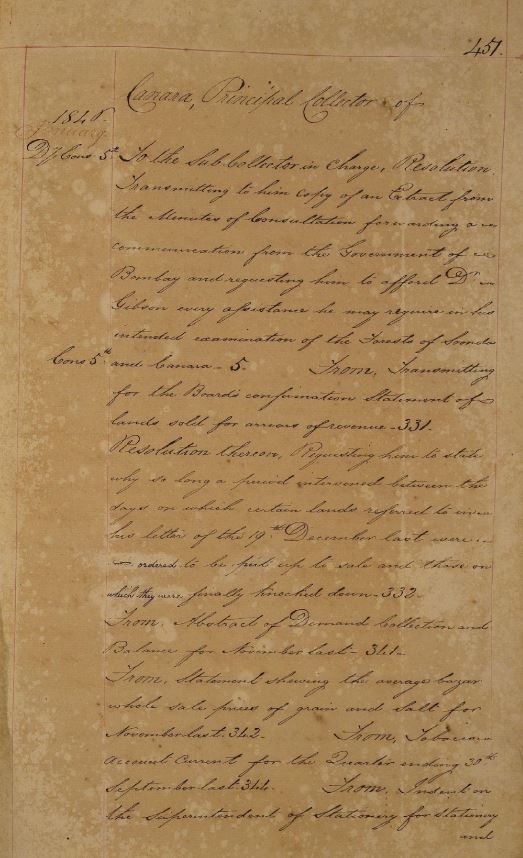 451.
Canara, Principal Collector of
1846.
January
D[?] Cons 5th To the Sub Collector in charge, Resolution
Transmitting to him copy of an Extract from
the Minutes of Consultation forwarding a
communication from the Government of
Bombay and requesting him to afford Dr
Gibson every assistance he may require in his
intended examination of the Forests of Soonda
Cons 5th and Canara - 5. From, Transmitting
for the Board's confirmation Statement of
lands sold for arrears of revenue - 331.
Resolution thereon, Requesting him to state
why so long a period intervened between the
days on which certain lands referred to in
his letter of the 19th December last were
ordered to be put up to sale and those on
which they were finally knocked down - 332.
From, Abstract of Demand Collection and
Balance for November last - 341.
From, Statement shewing the average bazar
whole sale prices of grain and salt for
November last. 342. From, Tobacco
Account Current for the Quarter ending 30th
September last. 344. From, Indent on
the Superintendent of Stationery for Stationery
and